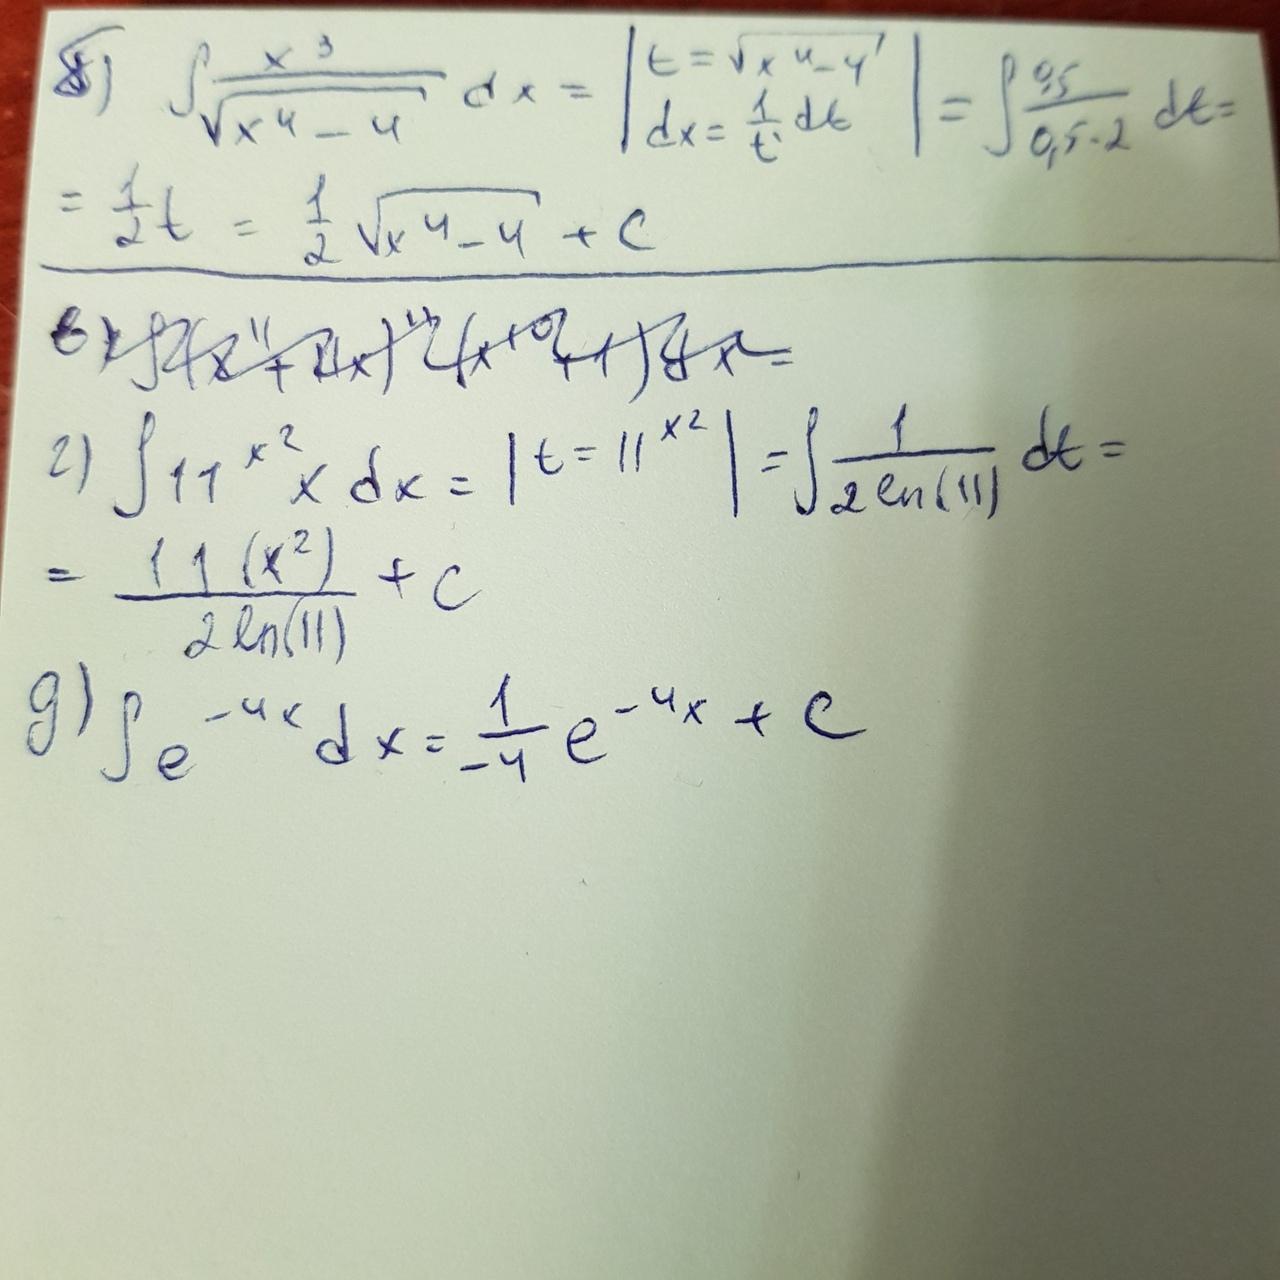 б) ∫ x³/√(x⁴-4) dx = | t = √(x⁴-4) dx = 1/t' dt | = ∫ 0,5/(0,5·2) dt =
= 1/2 t = 1/2 √(x⁴-4) + C
в)
г) ∫ 11^x² x dx = | t = 11^x² | = ∫ 1/(2 ln(11)) dt =
= 11(x²)/(2 ln(11)) + C
g) ∫ e^-4x dx = 1/-4 e^-4x + C